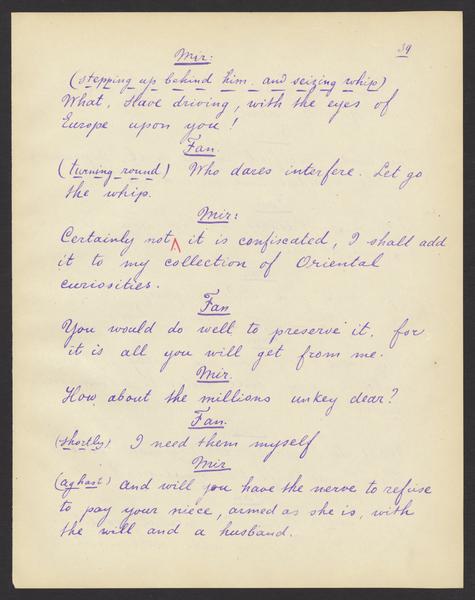 39
Mir:
(stepping up behind him and seizing whip)
What, slave driving, with the eyes of
Europe upon you!
Fan.
(turning round) Who dares interfere. Let go
the whip.
Mir:
Certainly not ^ it is confiscated, I shall add
it to my collection of Oriental
curiosities.
Fan
You would do well to preserve it, for
it is all you will get from me.
Mir.
How about the millions unkey dear?
Fan.
(shortly) I need them myself
Mir
(aghast) and will you have the nerve to refuse
to pay your niece, armed as she is, with
the will and a husband.